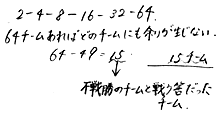 2-4-8-16-32-64.
64チームあればどのチームにも余りが生じない.
64-49=15 15チーム
不戦勝のチームと戦う筈だった
チーム.